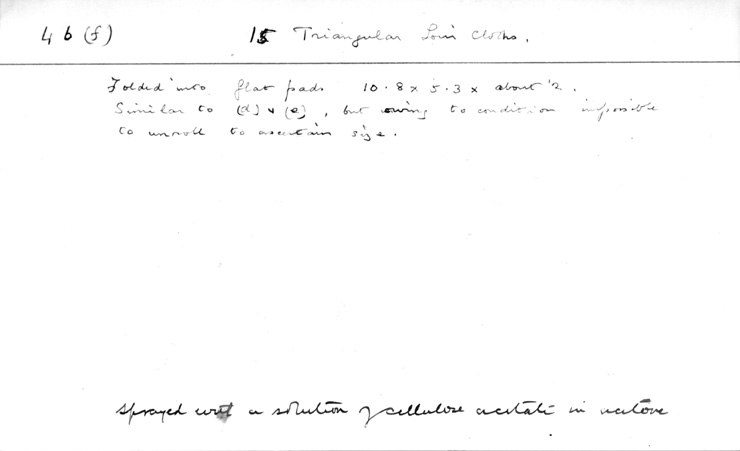 46 (f) 15 Triangular Loin Cloths.
Folded into flat pads 10.8 x 5.3 x about '2.
Similar to (d) & (e), but owing to condition impossible
to unroll to ascertain size.
Sprayed with a solution of cellulose acetate in acetone